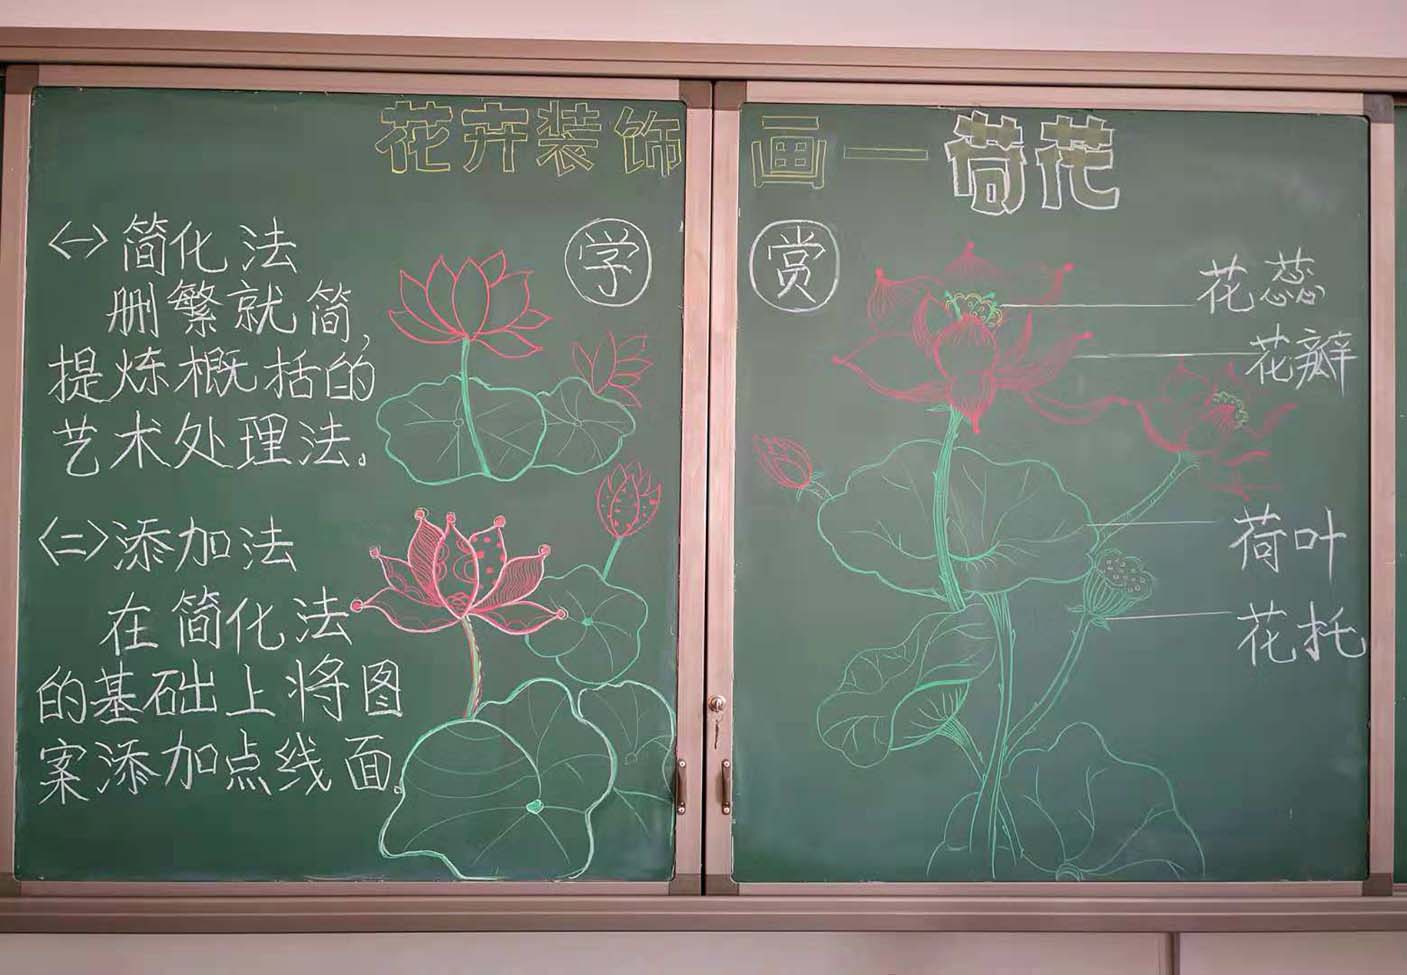 花卉装饰画一荷花
学
<一>简化法
删繁就简,
提炼概括的
艺术处理法。
<二>添加法
在简化法
的基础上将图
案添加点线面。
赏
花蕊
花瓣
荷叶
花托